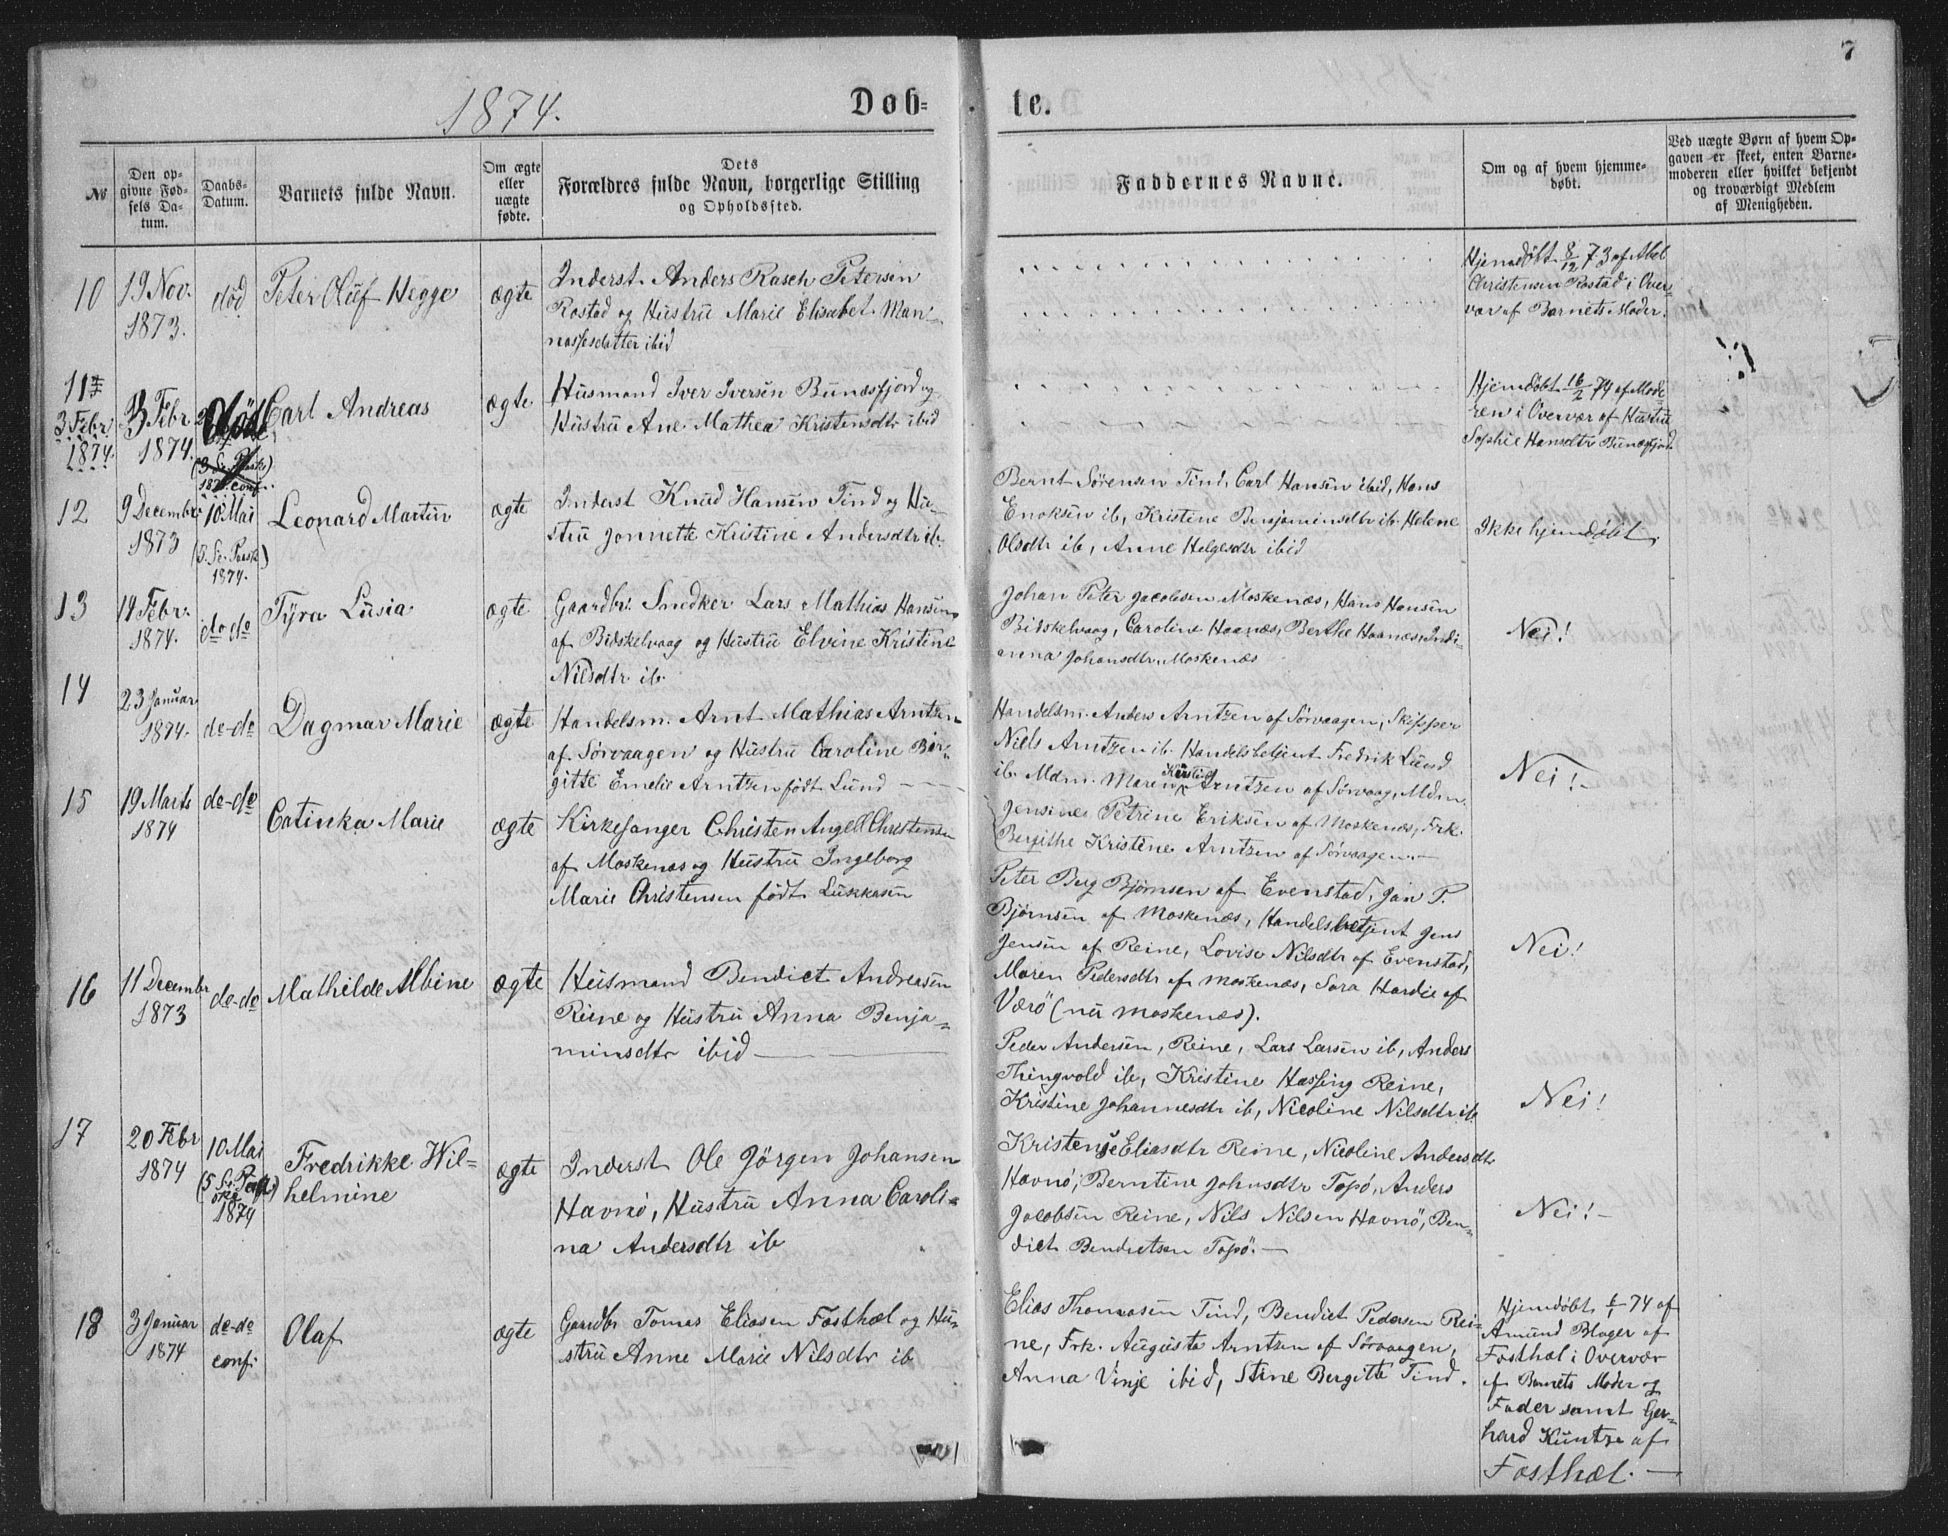 7
1874.
Døb-
te.
No
Den op-
givne Fød-
sels Da-
tum.
Daabs-
Datum.
Barnets fulde Navn.
Om ægte
eller
uægte
fødte.
Dets
Forældres fulde Navn, borgerlige Stilling
og Opholdssted.
Faddernes Navne.
Om og af hvem hjemme-
døbt.
Ved uægte Børn af hvem Op-
gaven er skeet, enten Barne-
moderen eller hvilket bekjendt
og troværdigt Medlem
af Menigheden.
10
19 Nov.
1873.
død
Peter Oluf Hegge
ægte
Inderst. Anders Rasch Petersen
Rostad og Hustru Marie Elisabet Man-
nassesdatter ibid
Hjemdøbt 8/12 73 af Abel
Christensen Rostad i Over-
vær af Barnets Moder.
11
3 Febr.
1874.
3 Febr
1874.
død
Carl Andreas
ægte
Husmand Iver Iversen Bunæsfjord og
Hustru Ane Mathea Kristensdtr ibid
Hjemdøbt 16/2 74 af Mode-
ren i Overvær af Hustru
Sophie Hansdtr Bunæsfjord
12
9 Decembr
1873
10 Mai
(5. S. e. Paask)
1874.
Leonard Martin
ægte
Inderst Knud Hansen Tind og Hu-
stru Jonnette Kristine Andersdtr ib.
Bernt Sørensen Tind, Carl Hansen ibid, Hans
Enoksen ib, Kristine Benjaminsdtr ib. Helene
Olsdtr ib, Anne Helgesdtr ibid
Ikke hjemdøbt.
13
18 Febr.
1874.
do do
Tyra Lusia
ægte
Gaardbr. Snedker Lars Mathias Hansen
af Bidskelvaag og Hustru Elvine Kristine
Nilsdtr ib.
Johan Peter Jacobsen Moskenæs, Hans Hansen
Bidskelvaag, Caroline Haanæs, Berthe Haanæs, Indi-
anna Johansdtr. Moskenæs
Nei!
14
23 Januar
1874.
do-do
Dagmar Marie
ægte
Handelsm. Arnt Mathias Arntzen
af Sørvaagen og Hustru Caroline Bir-
gitte Emelie Arntzen født Lund
Handelsm. Anders Arntzen af Sørvaagen, Skipper
Niels Arntzen ib. Handelsbetjent Fredrik Lund
ib. Mdm. Maren Arntzen af Sørvaag, Mdm.
Jensine Petrine Eriksen af Moskenæs, Frk.
Bergithe Kristine Arntzen af Sørvaagen.
Nei!
15
19 Marts
1874
do-do
Catinka Marie
ægte
Kirkesanger Christen Angell Christensen
af Moskenæs og Hustru Ingeborg
Marie Christensen født Lukkasen
Peter Berg Bjørnsen af Evenstad, Jan P.
Bjørnsen af Moskenæs, Handelsbetjent Jens
Jensen af Reine, Lovise Nilsdtr af Evenstad,
Maren Pedersdtr af Moskenæs, Sara Hardie af
Værö (nu Moskenæs).
Nei!
16
11 Decembr
1873
do-do
Mathilde Albine
ægte
Husmand Bendict Andreasen
Reine og Hustru Anna Benja-
minsdtr ibid
Peder Andersen, Reine, Lars Larsen ib, Anders
Thingvold ib, Kristine Hassing Reine,
Kristine Johannesdtr ib, Nicoline Nilsdtr ib.
Nei!
17
20 Febr
1874
10 Mai
1874
Fredrikke Wil-
helmine
ægte
Inderst Ole Jörgen Johansen
Havnö, Hustru Anna Caroli-
na Andersdtr ib
Eliasdtr Reine, Nicoline Andersdtr
Havnö, Berntine Johnsdtr Topö, Anders
Jacobsen Reine, Nils Nilsen Havnö, Ben-
dict Bendictsen Topö.
Nei!
18
3 Januar
1874
do-do
conf.
Olaf
ægte
Gaardbr Tomas Eliasen Fosthæl og Hu-
stru Anne Marie Nilsdtr ib
Elias Thomasen Tind, Bendict Pedersen Rei-
ne, Frk. Augusta Arntzen af Sørvaagen,
Anna Vinje ibid, Stine Bergitte Tind.
Hjemdøbt 74 af
Amund Blager af
Fosthæl i Overvær
af Barnets Moder og
Fader samt Ger-
hard Kuntze af
Fosthæl.